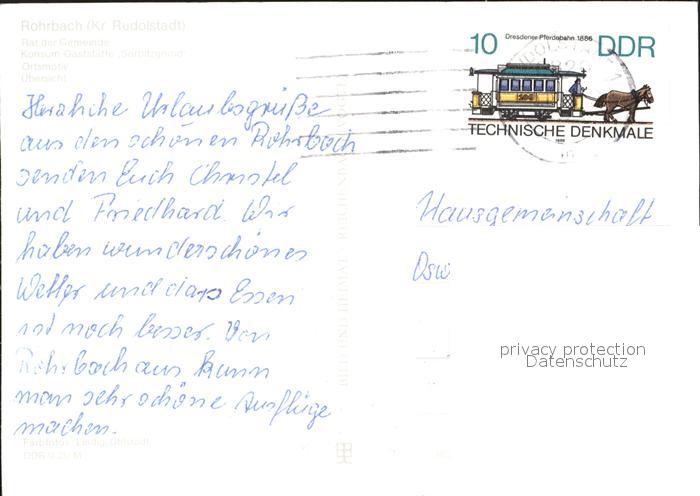 Rohrbach (Kr. Rudolstadt)
Rat der Gemeinde
Konsum-Gaststätte „Sorbitzgrund“
Ortsmotiv
Übersicht
Herzliche Urlaubsgrüße
aus den schönen Rohrbach
senden Euch Christel
und Friedhard. Wir
haben wunderschönes
Wetter und das Essen
ist noch besser. Von
Rohrbach aus kann
man sehr schöne Ausflüge
machen.
Farbfotos: Lindig,
BILD UND HEIMAT
Dresdener Pferdebahn 1886
10 DDR
TECHNISCHE DENKMALE
1986
Hausgemeinschaft
Osw
privacy protection
Datenschutz